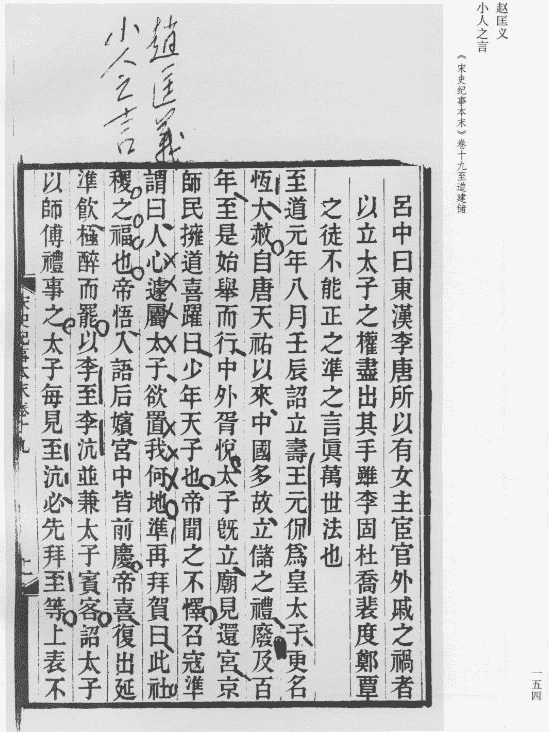 赵匡义
小人之言
《宋史纪事本末》卷十九至道建储
趙匡義
小人之言
呂中曰東漢李唐所以有女主宦官外戚之禍者
以立太子之權盡出其手雖李固杜喬裴度鄭覃
之徒不能正之準之言眞萬世法也
至道元年八月壬辰詔立壽王元侃爲皇太子更名
恆大赦自唐天祐以來中國多故立儲之禮廢及百
年至是始舉而行中外胥悅太子旣立廟見還宮京
師民擁道喜躍曰少年天子也帝聞之不懌召寇準
謂曰人心遽屬太子欲置我何地準再拜賀曰此社
稷之福也帝悟入語后嬪宮中皆前慶帝喜復出延
準飮極醉而罷以李至李沆並兼太子賓客詔太子
以師傅禮事之太子每見至沆必先拜至等上表不
宋史紀事本末卷十九
十一
一五四